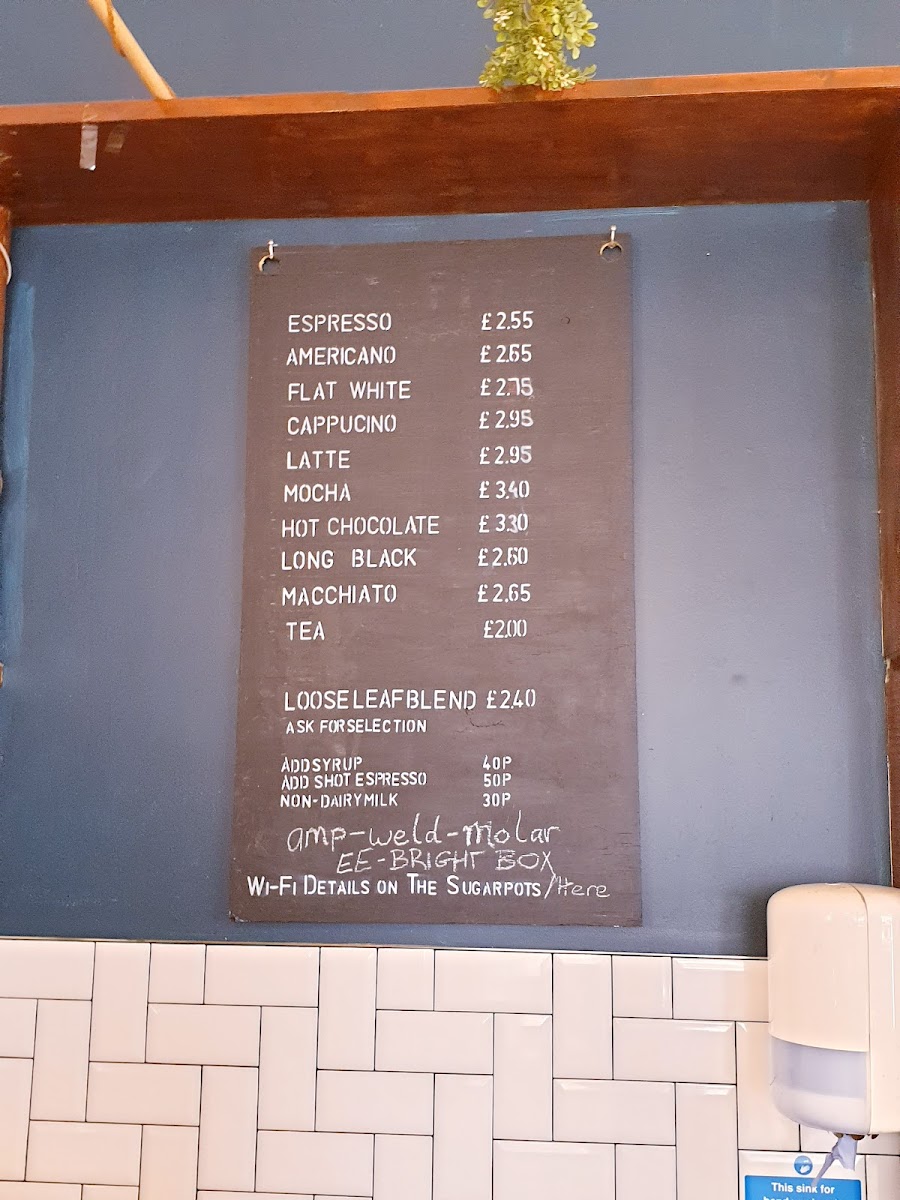 ESPRESSO £2.55
AMERICANO £2.65
FLAT WHITE £2.75
CAPPUCINO £2.95
LATTE £2.95
MOCHA £3.40
HOT CHOCOLATE £3.30
LONG BLACK £2.60
MACCHIATO £2.65
TEA £2.00
LOOSE LEAF BLEND £2.40
ASK FOR SELECTION
ADD SYRUP 40P
ADD SHOT ESPRESSO 50P
NON-DAIRY MILK 30P
amp-weld-Molar
EE-BRIGHT BOX
WI-FI DETAILS ON THE SUGARPOTS/Here
This sink for